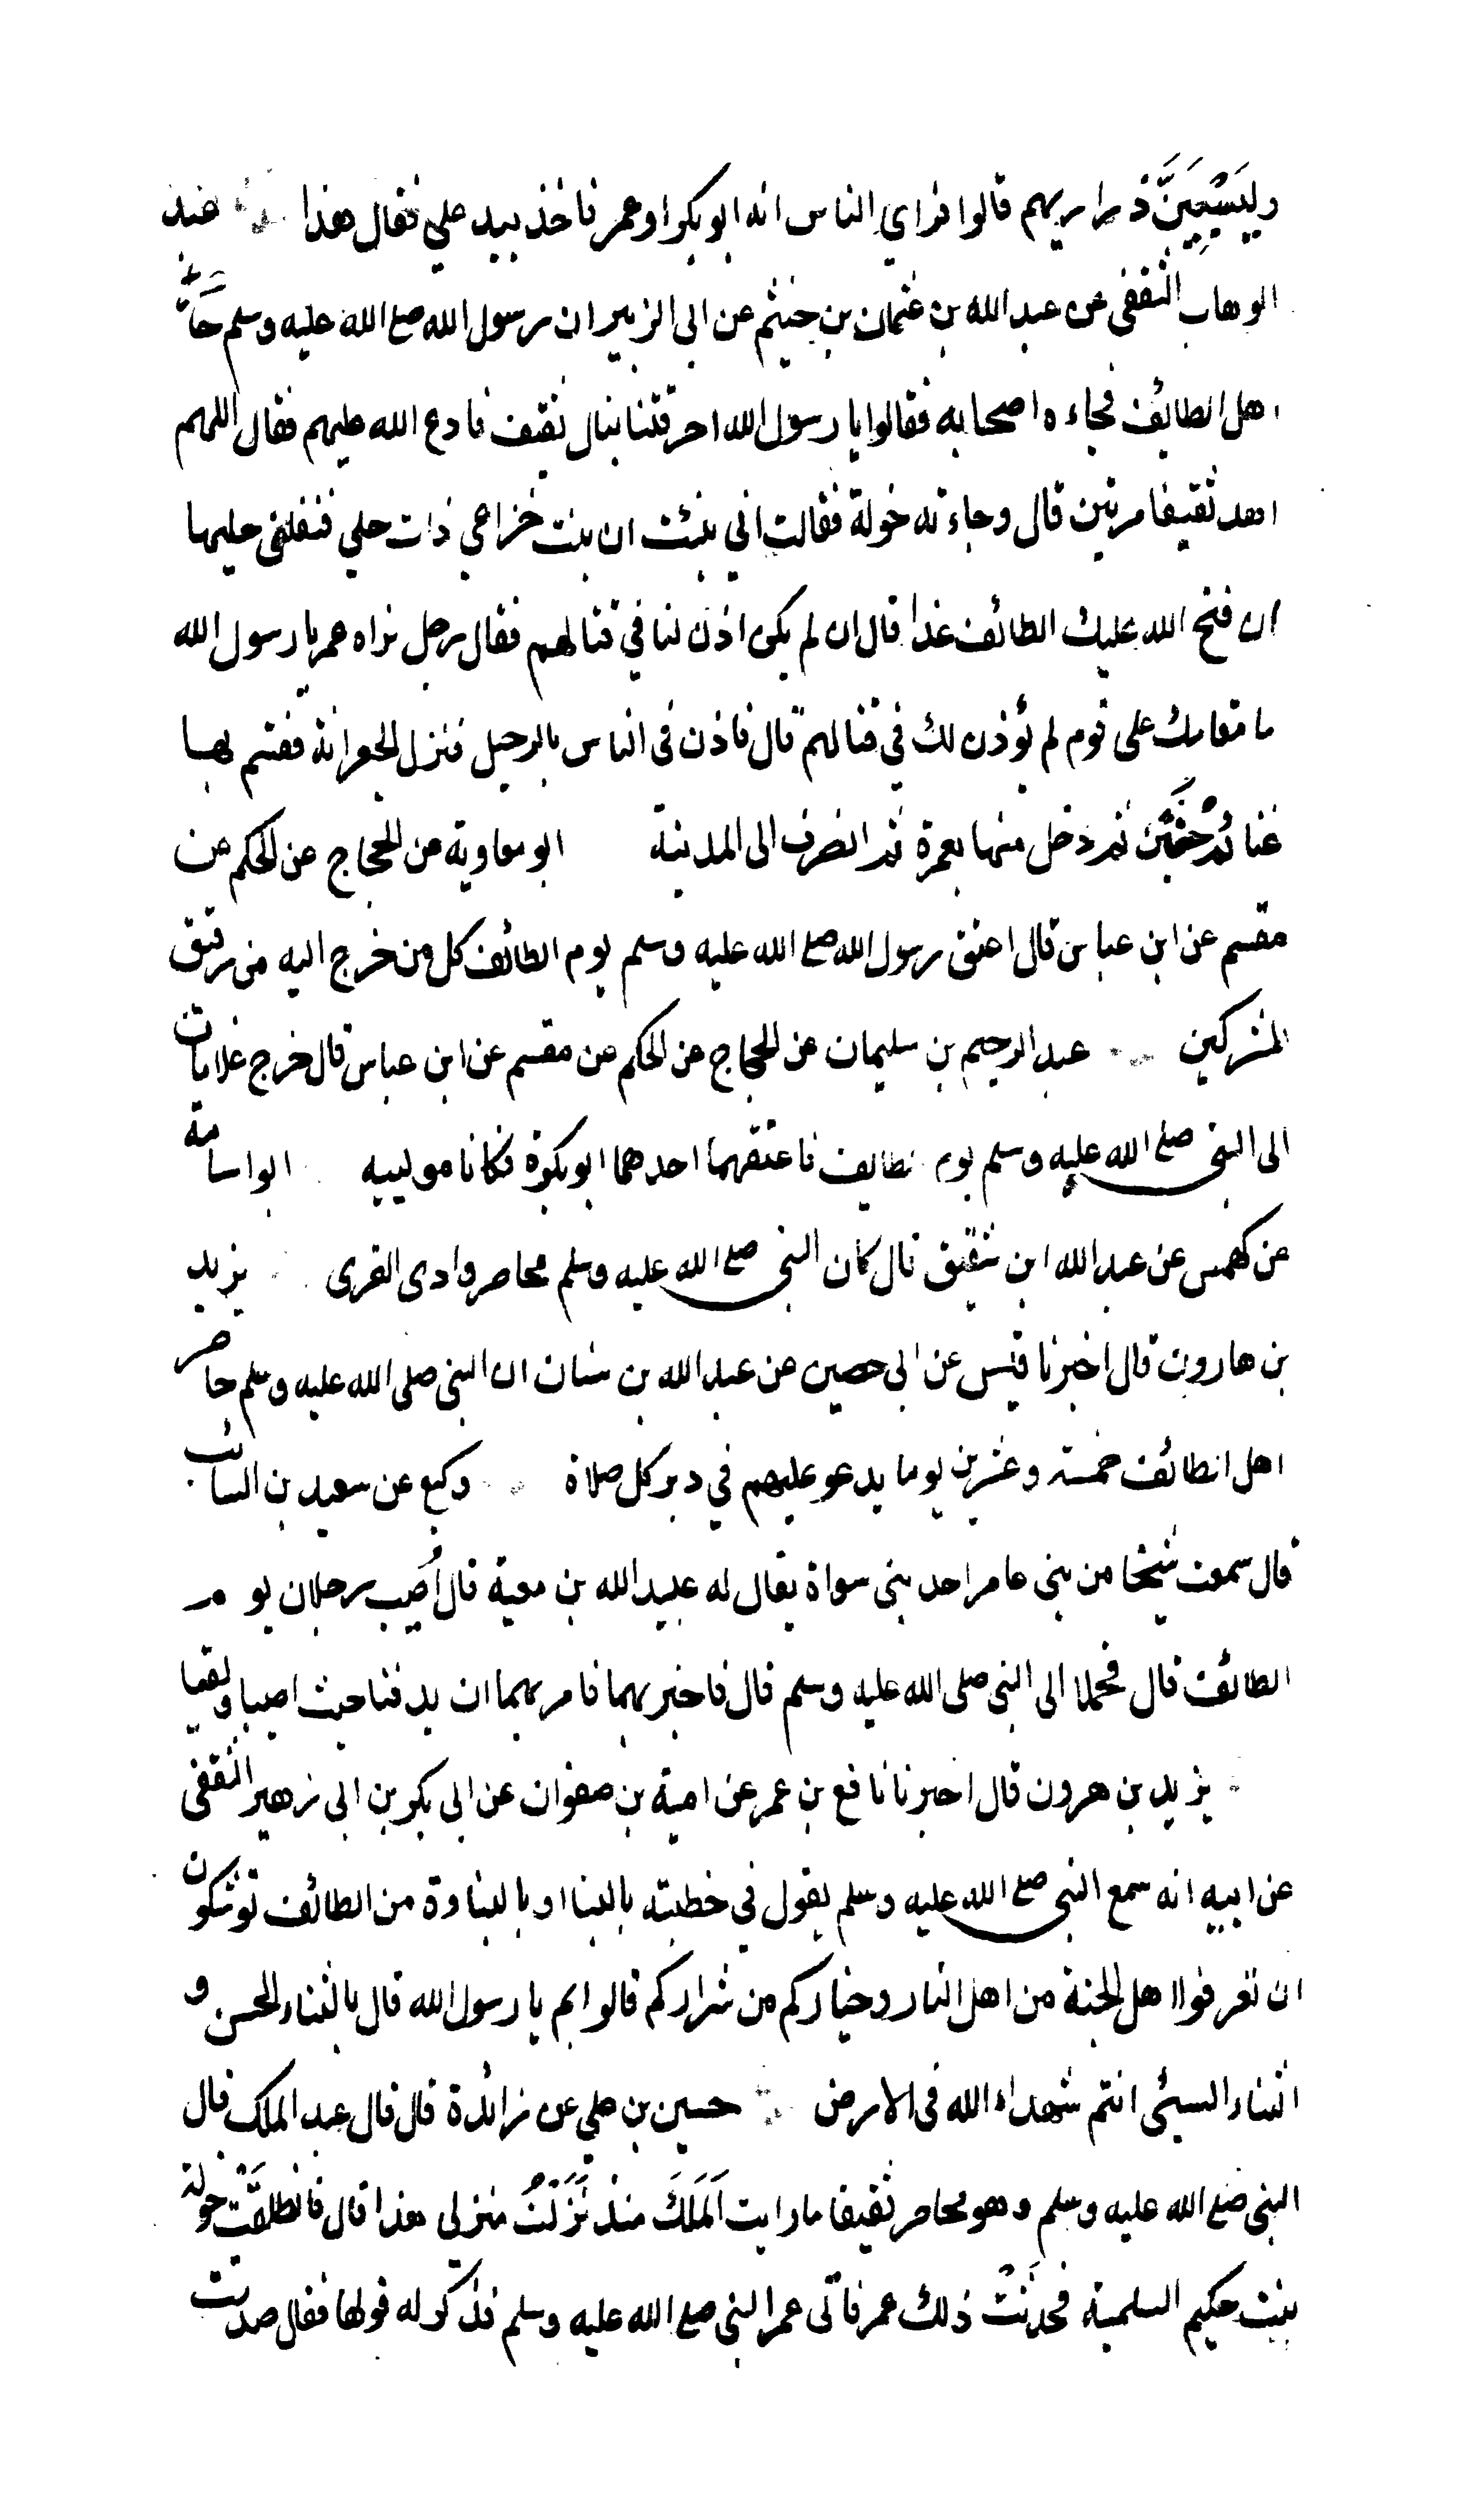 وليَسْبِيَنَّ ذراريهم قالوا فراي الناس انه ابو بكر او عمر فاخذ بيد علي فقال هذا عبد
الوهاب الثقفي عن عبد الله بن عثمان بن خيثم عن ابى الزبير ان رسول الله صلع الله عليه وسلم حَاصَر
اهل الطائف فجاء ه اصحابه فقالوا يا رسول الله احرقتنا نبال ثقيف فادع الله عليهم فقال اللهم
اهد ثقيفا مرتين قال وجاءته خولة فقالت اني نبئت ان بنت خزاعي ذات حلي فنفلني حليها
ان فتح الله عليك الطائف غدا قال ان لم يكن اذن لنا في قتالهم فقال رجل نراه عمر يا رسول الله
ما مقامك على قوم لم يؤذن لك في قتالهم قال فاذن فى الناس بالرحيل فنزل الجعرانة فقسم بها
غنائم حُنَيْن ثم دخل منها بعمرة ثم انصرف الى المدينة ابو معاوية عن الحجاج عن الحكم عن
مقسم عن ابن عباس قال اعتق رسول الله صلع الله عليه وسلم يوم الطائف كل من خرج اليه من رقيق
المشركين عبد الرحيم بن سليمان عن الحجاج عن الحكم عن مقسم عن ابن عباس قال خرج غلامان
الى النبي صلع الله عليه وسلم يوم الطايف فاعتقهما احدهما ابو بكرة فكانا مولييه ابو اسامة
عن كهمس عن عبد الله ابن شقيق قال كان النبي صلع الله عليه وسلم محاصر وادى القرى يزيد
بن هارون قال اخبرنا قيس عن ابى حصين عن عبد الله بن سنان ان النبي صلى الله عليه وسلم حاصر
اهل الطائف خمسة وعشرين يوما يدعو عليهم في دبر كل صلاة وكيع عن سعيد بن السائب
قال سمعت شيخا من بنى عامر احد بنى سواة يقال له عبيد الله بن معية قال اُصيب رجلان يوم
الطائف قال فحملا الى النبي صلى الله عليه وسلم قال فاخبر بهما فامر بهما ان يدفنا حيث اصيبا ولقيا
يزيد بن هرون قال اخبرنا نافع بن عمر عن امية بن صفوان عن ابى بكر بن ابى زهير الثقفى
عن ابيه انه سمع النبي صلع الله عليه وسلم يقول في خطبته بالنبا او بالنباوة من الطائف توشكون
ان تعرفوا اهل الجنة من اهل النار وخياركم من شراركم قالوا بم يا رسول الله قال بالثناء الحسن و
الثناء السيئ انتم شهداء الله فى الارض حسين بن علي عن زائدة قال قال عبد الملك قال
النبي صلع الله عليه وسلم وهو محاصر ثقيفا ما رايت اَلمَلَكَ منذ نَزَلْتُ منزلى هذا قال فانطلقَتْ خولة
بنت حكيم السلمية فحدثَتْ ذلك عمر فاتى عمر النبي صلع الله عليه وسلم فذكر له قولها فقال صدقت